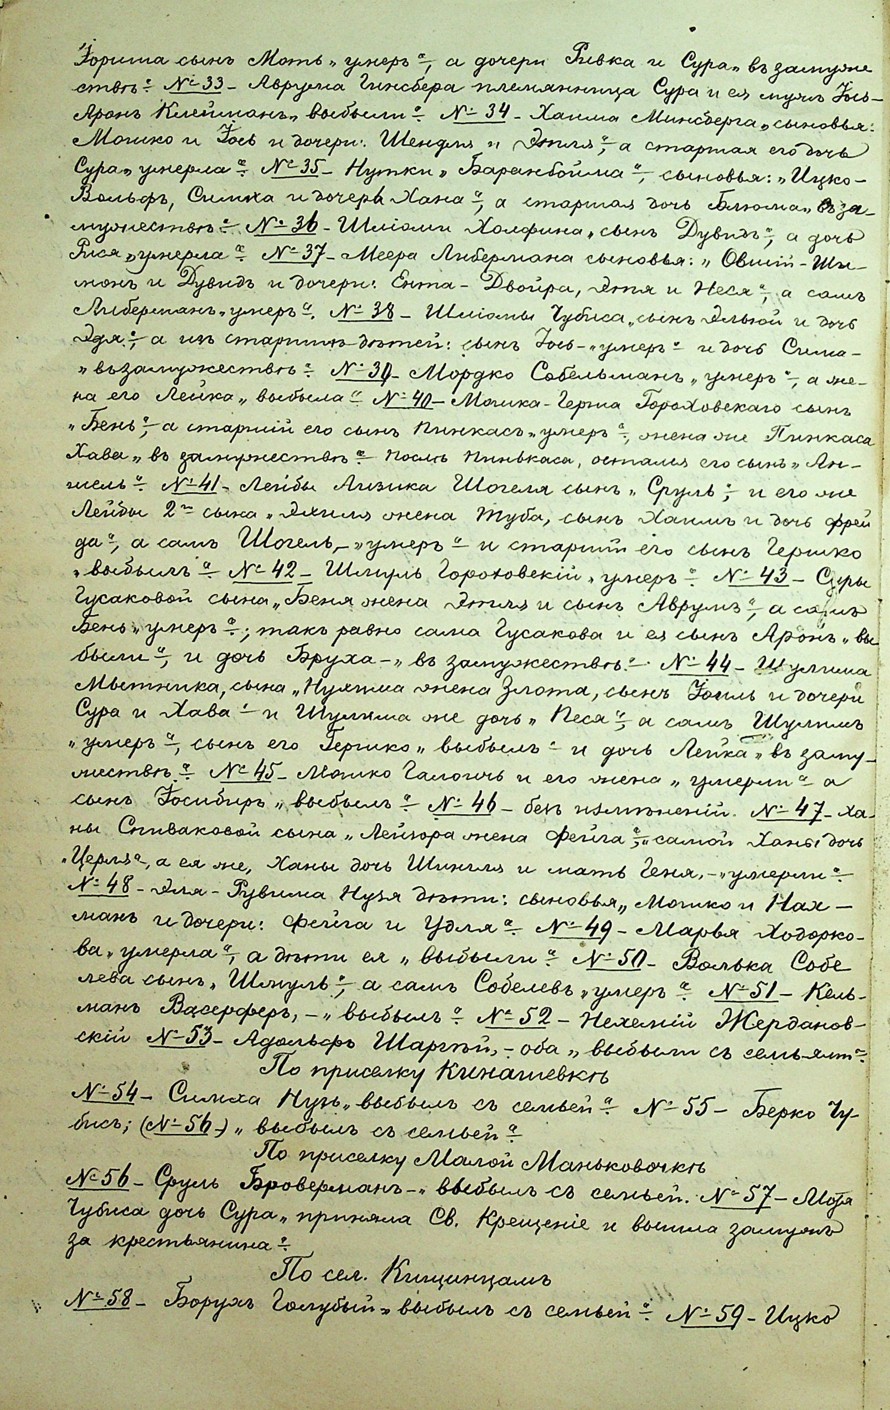 Гориша сынъ Моть „умеръ“, а дочери Ривка и Сура „въ замуже
ствѣ“. № 33 – Аврума Гинсбера племянница Сура и ея мужъ Іось-
Аронъ Клейманъ „выбыли“. № 34 – Хаима Минсберга „сыновья:
Мошко и Іось и дочери: Шендля и Этля“, а старшая его дочь
Сура „умерла“. № 35 – Нутки „Баренбойма“, сыновья: „Ицко-
Вольфъ, Симха и дочерь Хана“, а старшая дочь Блюма „въ за-
мужествѣ“. № 36 – Шліоми Холфина „сынъ Дувидъ“, а дочь
Рися „умерла“. № 37 – Меера Либермана сыновья: „Овшій-Ши-
монъ и Дувидъ и дочери: Ента-Двойра, Этя и Неся“, а самъ
Либерманъ „умеръ“. № 38 – Шліомы Чубиса „сынъ Эльіой и дочь
Эдя“, а изъ старшихъ дѣтей: сынъ Іось – „умеръ“ и дочь Сима –
„въ замужествѣ“. № 39 – Мордко Собельманъ „умеръ“, а же-
на его Лейка „выбыла“ № 40 – Мошка-Герша Гороховскаго сынъ
„Бень“, а старшій его сынъ Пинкасъ „умеръ“, жена же Пинкаса
Хава „въ замужествѣ“ послѣ Пинькаса, остался его сынъ „Ан-
шель“. № 41 – Лейбы Айзика Шогеля сынъ „Сруль“, и его же
Лейбы 2й сына „Эхиля жена Туба, сынъ Хаимъ и дочь Фрей
да“, а самъ Шогель – „умеръ“ и старшій его сынъ Гершко
„выбылъ“. № 42 – Шмуль Гороховскій „умеръ“. № 43 – Суры
Гусаковой сына „Беня жена Этля и сынъ Аврумъ“, а самъ
Бень „умеръ“; такъ равно сама Гусакова и ея сынъ Аронъ „вы
были“, и дочь Бруха – „въ замужествѣ“. № 44 – Шулима
Мытника, сына „Нухима жена Злота, сынъ Іоиль и дочери
Сура и Хава“ и Шулима же дочь „Песя“, а самъ Шулимъ
„умеръ“, сынъ его Гершко „выбылъ“ и дочь Лейка „въ заму-
жествѣ“. № 45 – Мошко Галогичъ и его жена „умерли“ а
сынъ Іосибиръ „выбылъ“. № 46 – безъ измѣненій. № 47 – Ха-
ны Спиваковой сына „Лейзора жена Фейга“, самой Ханы дочь
„Церля“, а ея же, Ханы дочь Шингля и мать Геня, – „умерли“.
№ 48 – Эля-Рувима Нузя дѣти: сыновья „Мошко и Нах-
манъ и дочери: Фейга и Удля“. № 49 – Марья Ходорко-
ва „умерла“, а дѣти ея „выбыли“. № 50 – Волька Собе
лева сынъ „Шмуль“, а самъ Собелевъ „умеръ“. № 51 – Кель-
манъ Васерферъ, – „выбылъ“. № 52 – Нехемій Жерданов-
скій № 53 – Адольфъ Шаргѣй, – оба „выбыли съ семьями“.
По приселку Кинашевкѣ
№ 54 – Симха Нузь „выбылъ съ семьей“. № 55 – Берко Чу-
бисъ; (№ 56) „выбылъ съ семьей“.
По приселку Малой Маньковочкѣ
№ 56 – Сруль Броверманъ – „выбылъ съ семьей. № 57 – Мотя
Чубиса дочь Сура „приняла Св. Крещеніе и вышла замужъ
за крестьянина“.
По сел. Кищинцамъ
№ 58 – Борухъ Голубый „выбылъ съ семьей“. № 59 – Ицко